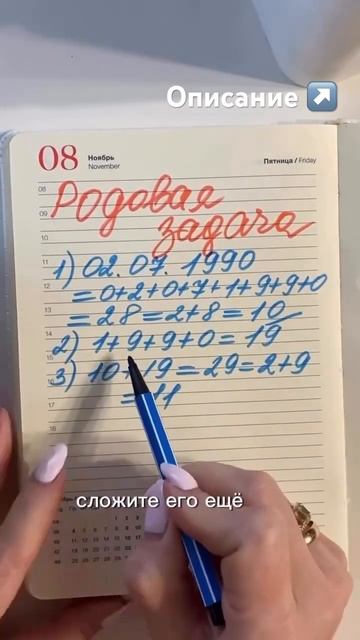 Описание ↗
08
Ноябрь
November
Пятница / Friday
Родовая
задача
1) 02. 07. 1990
= 0+2+0+7+1+9+9+0
= 28 = 2+8 = 10
2) 1+9+9+0 = 19
3) 10+19 = 29 = 2+9
= 11
сложите его ещё